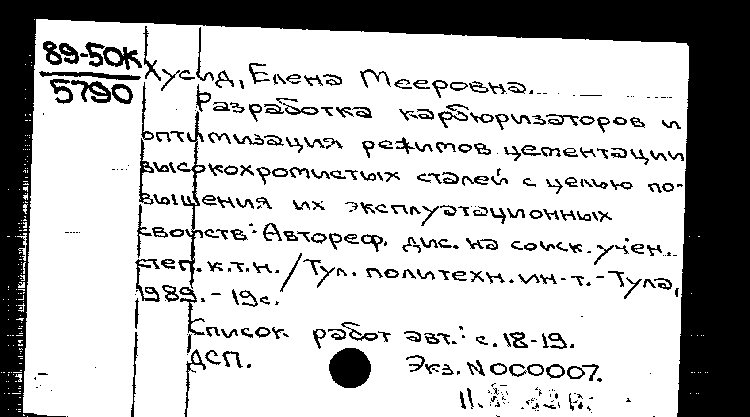 89-50К
5790
Хусид, Елена Мееровна.
Разработка карбюризаторов и
оптимизация режимов цементации
высокохромистых сталей с целью по-
вышения их эксплуатационных
свойств: Автореф. дис. на соиск. учен.
степ. к.т.н. / Тул. политехн. ин-т. - Тула,
1989. - 19с.
Список работ авт.: с. 18-19.
ДСП. Экз. N 000007.